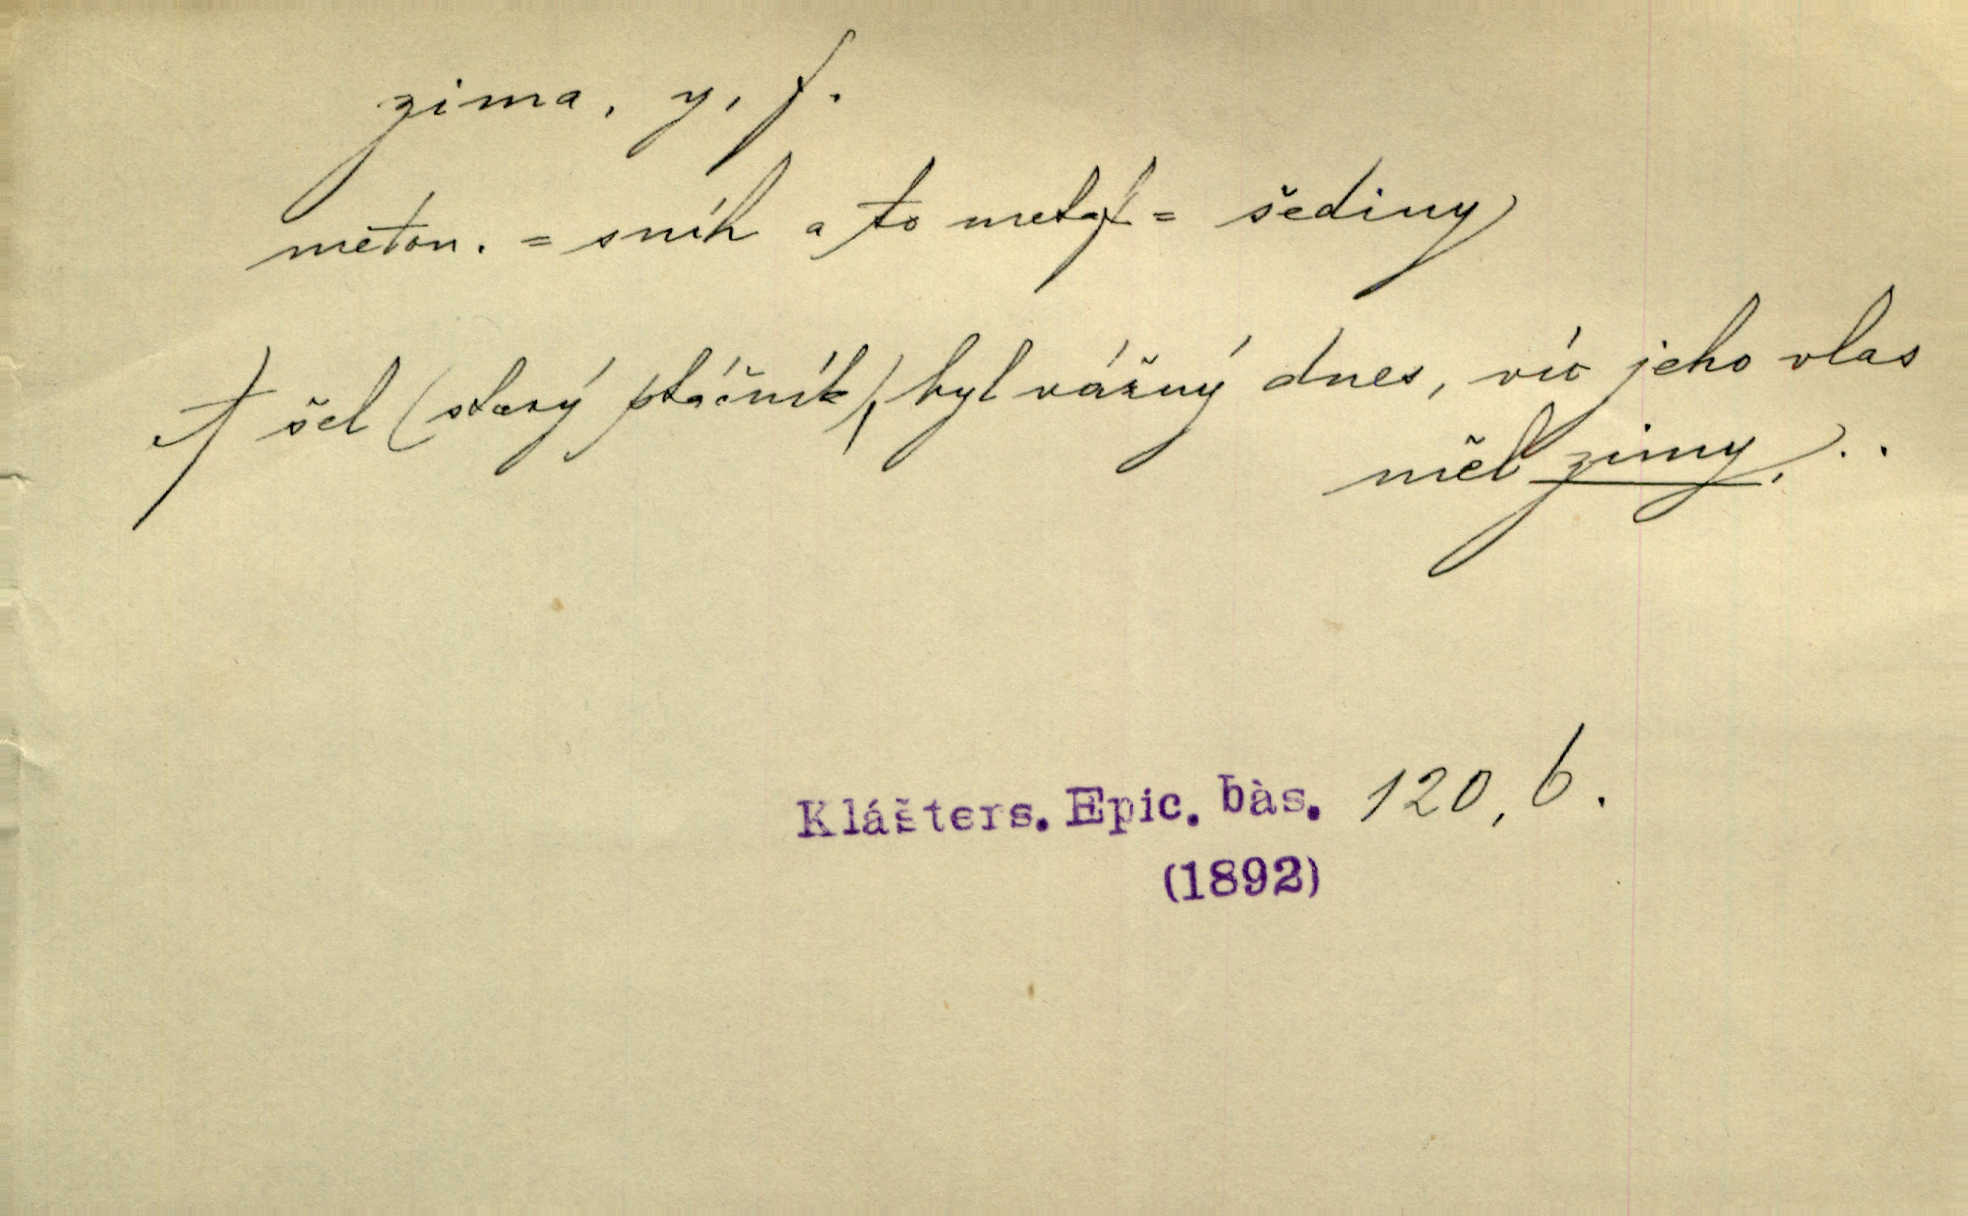 zima, y, f.
meton. = sníh a to metaf = šediny
A šel (starý ptáčník), byl vážný dnes, víc jeho vlas
měl zimy, ..
Klášters. Epic. bàs. 120, b.
(1892)